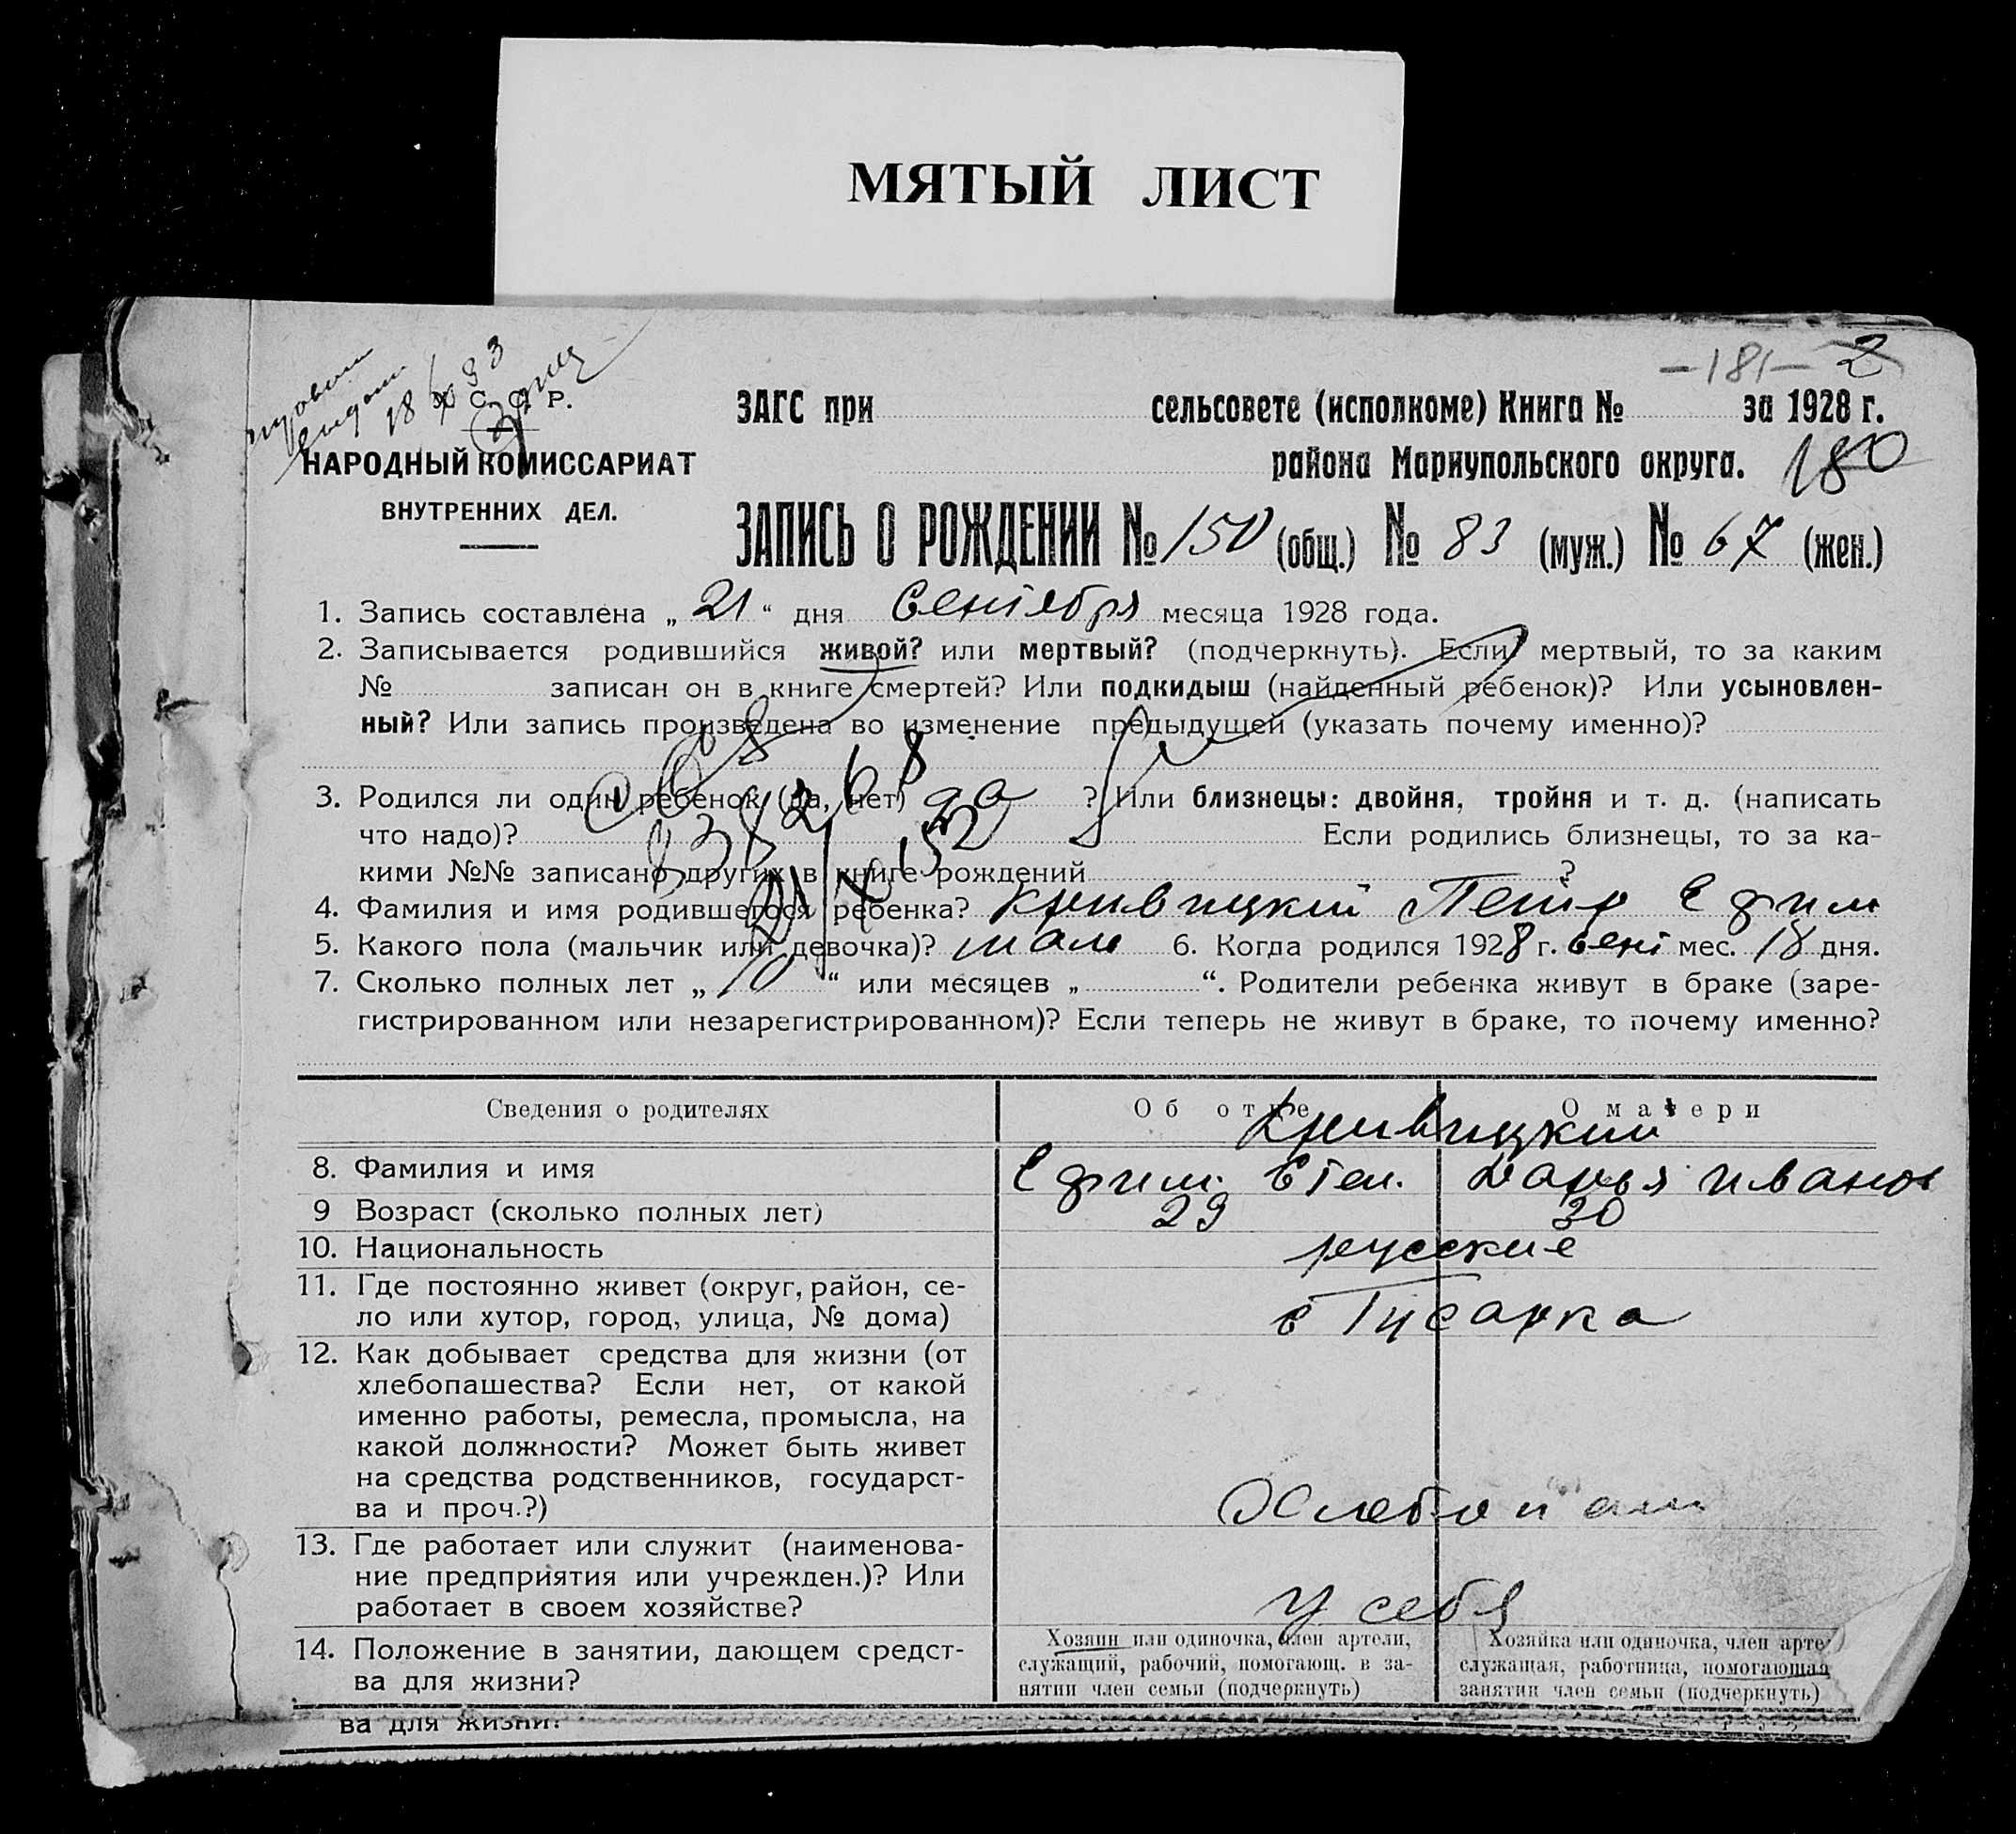 МЯТЫЙ ЛИСТ
-181- 2
18 33
С. Р.
НАРОДНЫЙ КОМИССАРИАТ
ВНУТРЕННИХ ДЕЛ.
ЗАГС при сельсовете (исполкоме) Книга № за 1928 г.
района Мариупольского округа. 180
ЗАПИСЬ О РОЖДЕНИИ № 150 (общ.) № 83 (муж.) № 67 (жен.)
1. Запись составлена „ 21 “ дня Сентебря месяца 1928 года.
2. Записывается родившийся живой? или мертвый? (подчеркнуть). Если мертвый, то за каким
№ записан он в книге смертей? Или подкидыш (найденный ребенок)? Или усыновлен-
ный? Или запись произведена во изменение предыдущей (указать почему именно)?
3. Родился ли один ребенок (да, нет) да ? Или близнецы: двойня, тройня и т. д. (написать
что надо)? Если родились близнецы, то за ка-
кими №№ записано других в книге рождений ?
4. Фамилия и имя родившегося ребенка? Кривицкий Петр Ефим
5. Какого пола (мальчик или девочка)? мал 6. Когда родился 1928 г. сент мес. 18 дня.
7. Сколько полных лет „ 10 “ или месяцев „ “. Родители ребенка живут в браке (заре-
гистрированном или незарегистрированном)? Если теперь не живут в браке, то почему именно?
Сведения о родителях Об отце О матери
Кривицкий
8. Фамилия и имя Ефим. Степ. Дарья Иванов
9 Возраст (сколько полных лет) 29 30
10. Национальность русские
11. Где постоянно живет (округ, район, се-
ло или хутор, город, улица, № дома) с Гусарка
12. Как добывает средства для жизни (от
хлебопашества? Если нет, от какой
именно работы, ремесла, промысла, на
какой должности? Может быть живет
на средства родственников, государст-
ва и проч.?) Хлебопаш
13. Где работает или служит (наименова-
ние предприятия или учрежден.)? Или
работает в своем хозяйстве? у себя
14. Положение в занятии, дающем средст-
ва для жизни?
Хозяин или одиночка, член артели,
служащий, рабочий, помогающ. в за-
нятии член семьи (подчеркнуть)
Хозяйка или одиночка, член арте
служащая, работница, помогающая
занятии член семьи (подчеркнуть)
ва для жизни?